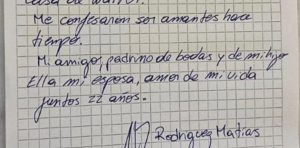 casa de
Me confesaron ser amantes hace
tiempo.
Mi amigo, padrino de bodas y de mi hijo
Ella mi esposa, amor de mi vida
juntos 22 años.
Rodriguez Matias